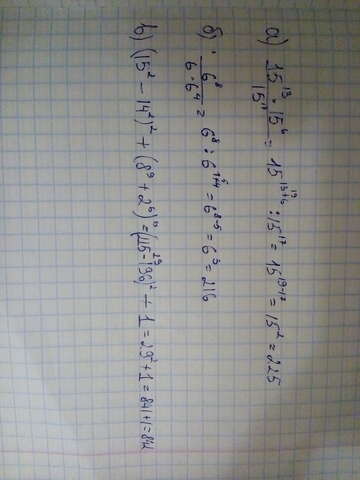 а) 15¹³ · 15⁶ / 15¹⁷ = 15¹³⁺⁶ : 15¹⁷ = 15¹⁹⁻¹⁷ = 15² = 225
б) 6⁸ / 6 · 6⁴ = 6⁸ : 6¹⁺⁴ = 6⁸⁻⁵ = 6³ = 216
в) (15² - 14²)² + (8⁹ + 2⁶)⁰ = (225 - 196)² + 1 = 29² + 1 = 841 + 1 = 842